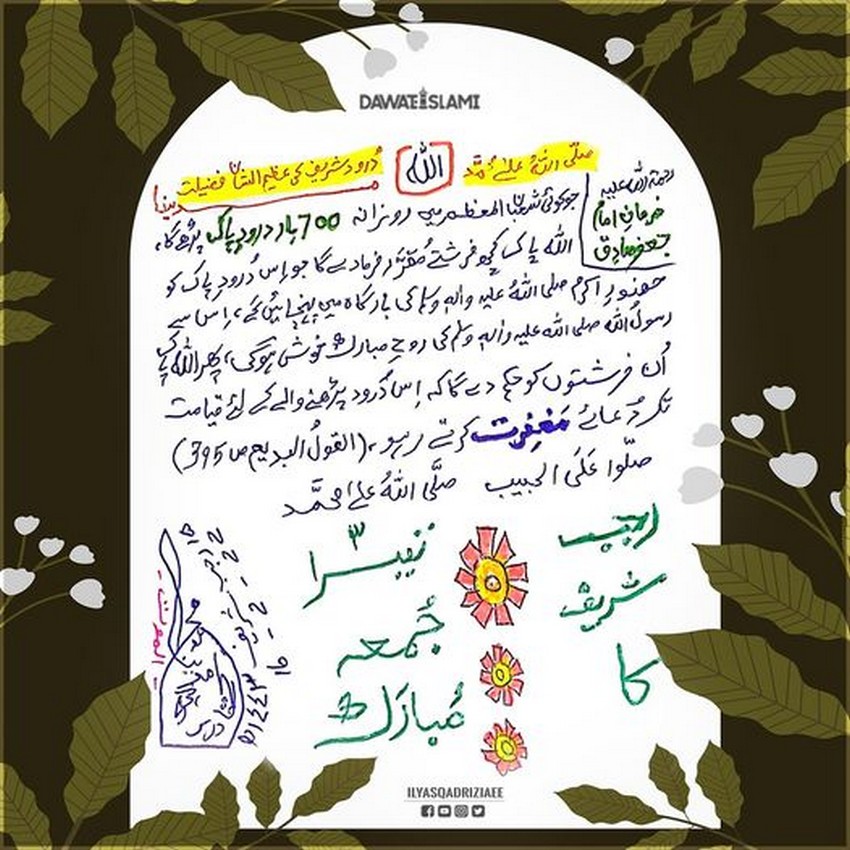 DAWATEISLAMI
صلّی اللہُ علیٰ مُحمَّد
اللہ
دُرود شریف کی عظیم الشان فضیلت
رحمۃ اللہ علیہ
فرمانِ امام
جعفر صادق
جو کوئی شعبان المعظم میں روزانہ 700 بار درودِ پاک پڑھے گا،
اللہ پاک کچھ فرشتے مُقرَّر فرما دے گا جو اِس دُرودِ پاک کو
حضورِ اکرم صلی اللہُ علیہ واٰلہٖ وسلم کی بارگاہ میں پہنچائیں گے، اِس سے
رسولُ اللہ صلی اللہ علیہ واٰلہٖ وسلم کی روحِ مبارک خوش ہوگی، پھر اللہ پاک
اُن فرشتوں کو حکم دے گا کہ اِس دُرود پڑھنے والے کے لئے قیامت
تک دُعائے مَغفِرت کرتے رہو ، (القولُ البدیع ص 395)
صلّوا عَلَی الحبیب صلَّی اللہُ علیٰ محمَّد
رجب
شریف
کا
تیسرا ۳
جُمعہ
مُبارَک
ILYASQADRIZIAEE